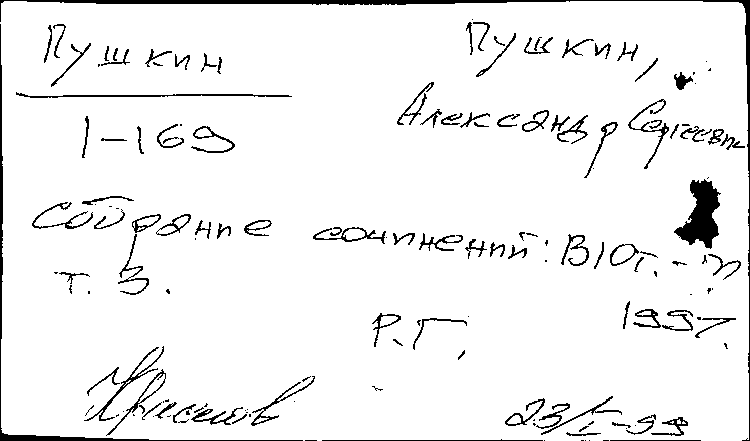 Пушкин
1-169
Пушкин,
Александр Сергеевич
Собрание сочинений: В 10 т. -
т. 3.
1997.
Р.Г.
23/I-99